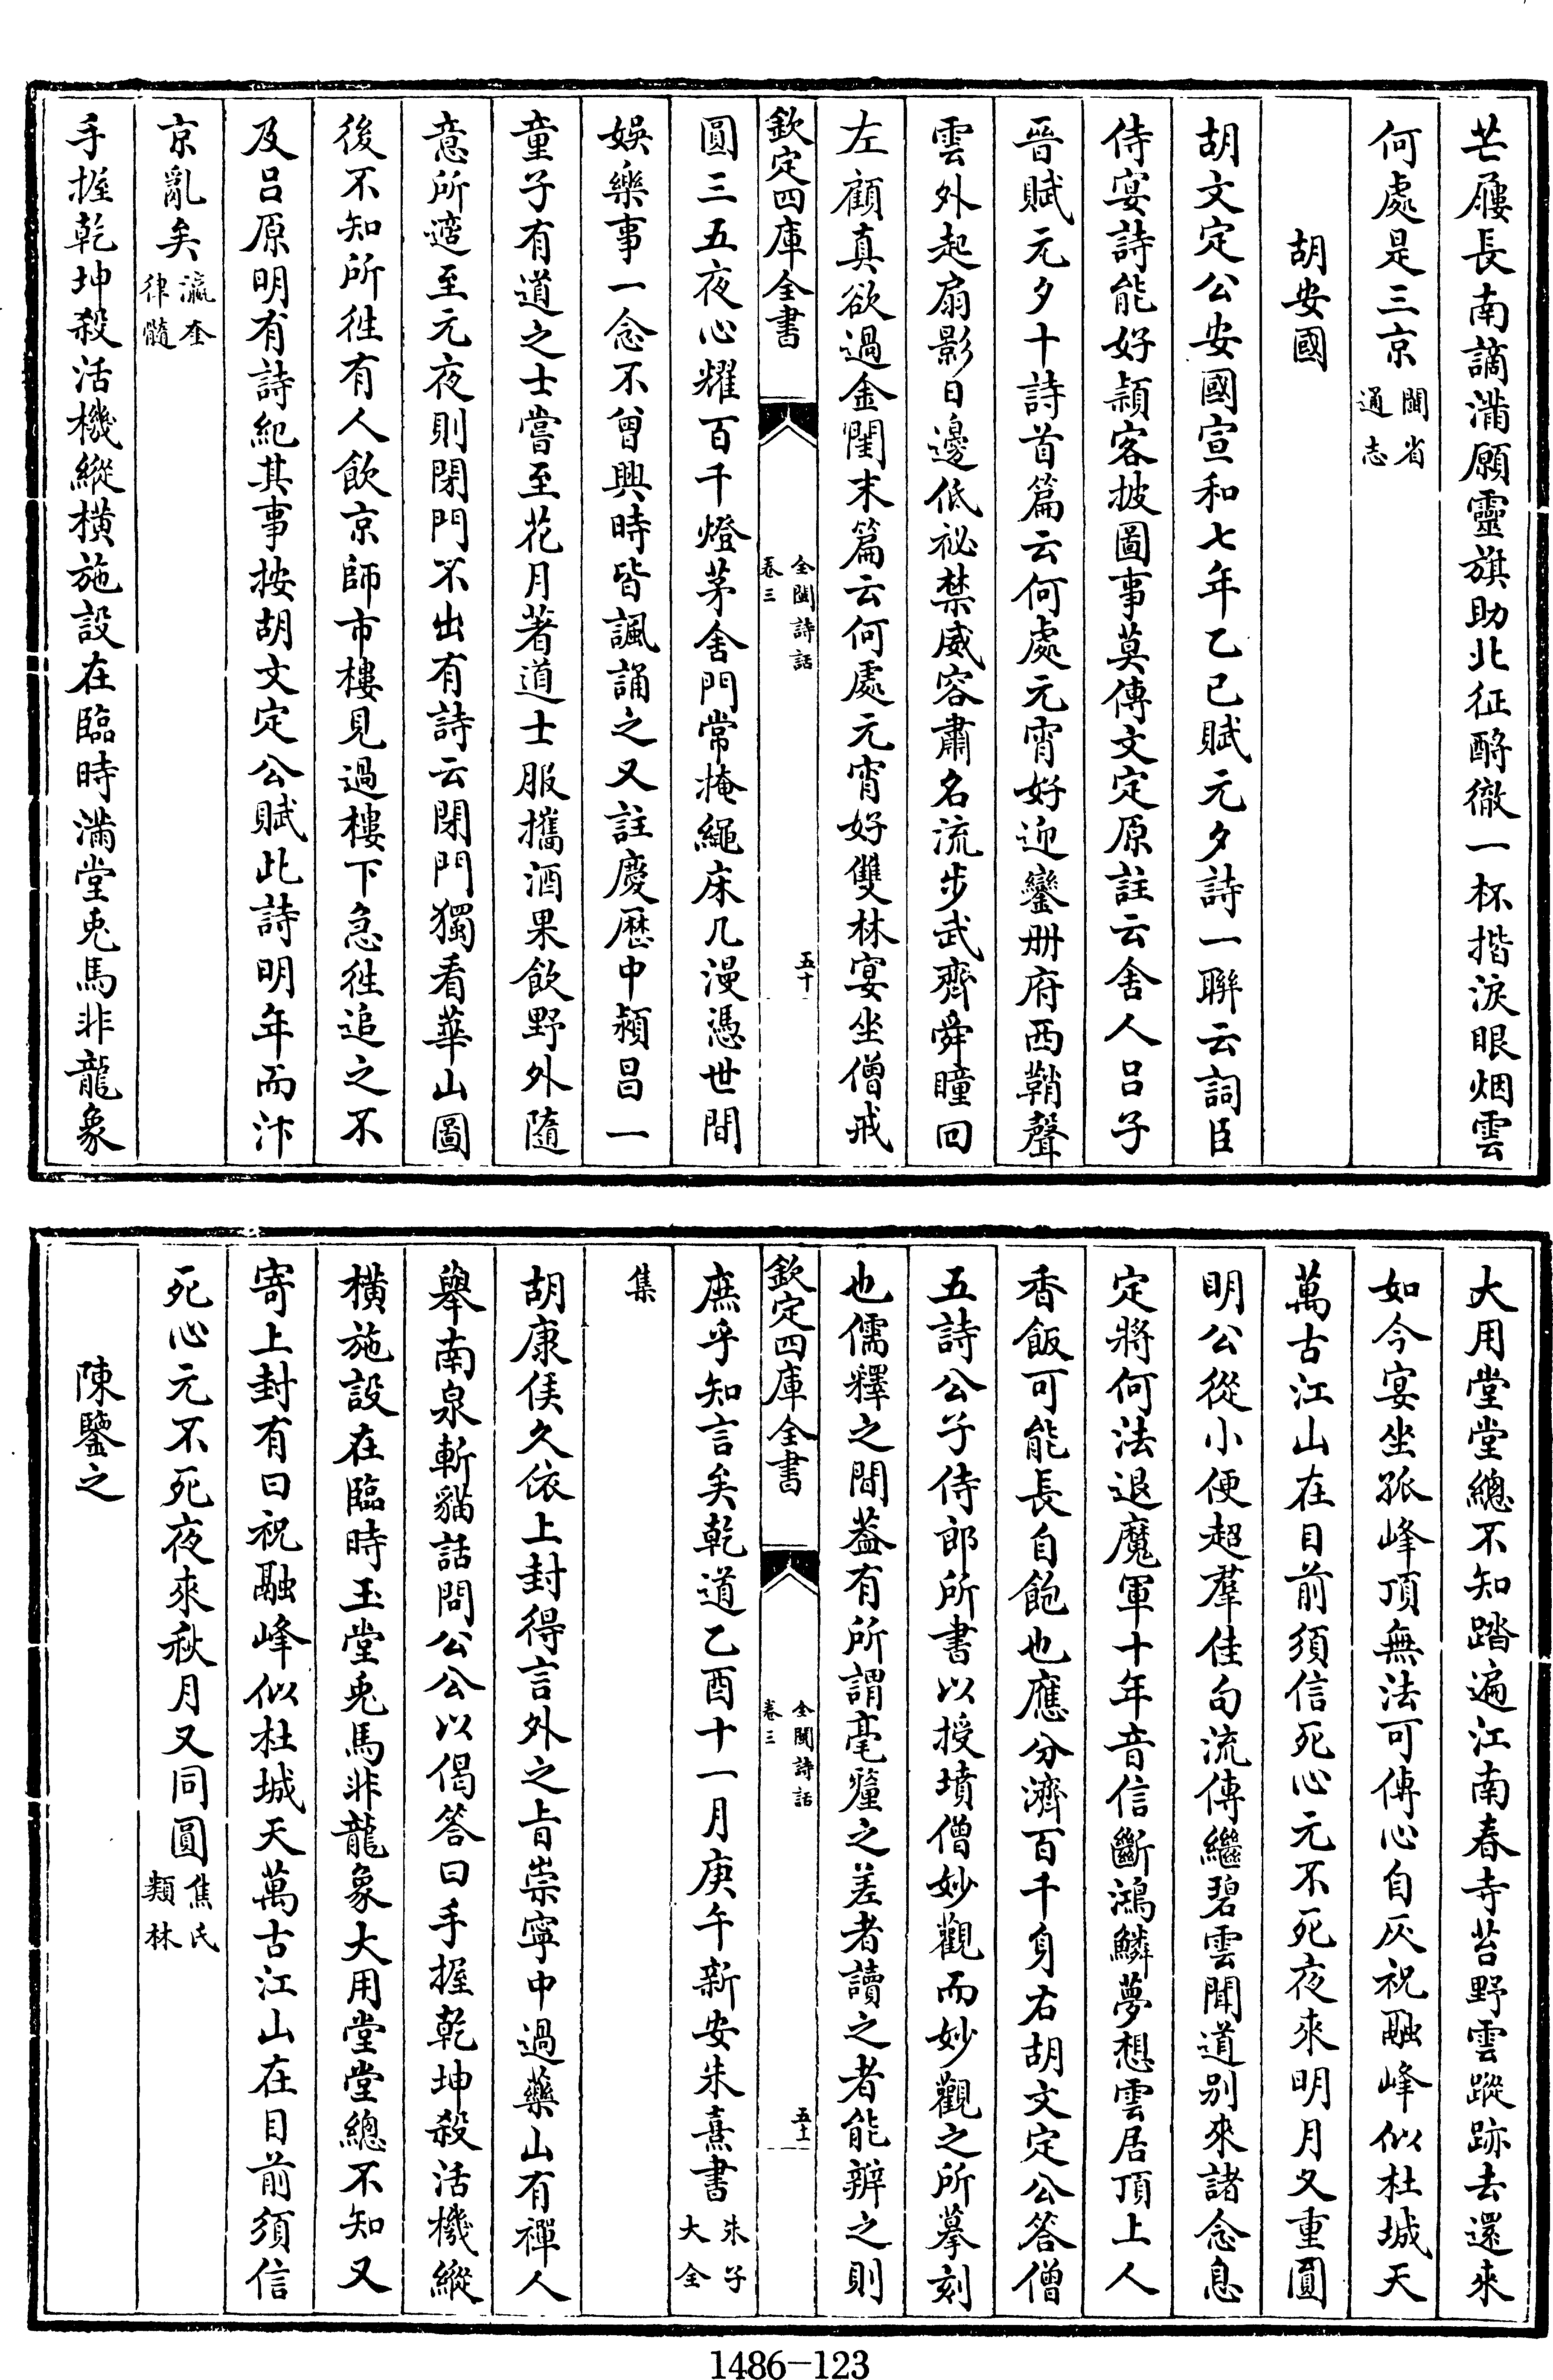 芒屨長南謫滿願靈旗助北征酹徹一杯揩淚眼烟雲
何處是三京閩省通志
胡安國
胡文定公安國宣和七年乙已賦元夕詩一聯云詞臣
侍宴詩能好頴客披圖事莫傳文定原註云舍人吕子
晉賦元夕十詩首篇云何處元宵好迎鑾册府西鞘聲
雲外起扇影日邊低祕禁威容肅名流步武齊舜瞳回
左顧真欲過金閨末篇云何處元宵好雙林宴坐僧戒
欽定四庫全書
全閩詩話
卷三
五十
圓三五夜心耀百千燈茅舍門常掩繩床几漫憑世間
娛樂事一念不曾興時皆諷誦之又註慶歷中潁昌一
童子有道之士嘗至花月著道士服攜酒果飲野外隨
意所適至元夜則閉門不出有詩云閉門獨看華山圖
後不知所徃有人飲京師市樓見過樓下急徃追之不
及吕原明有詩紀其事按胡文定公賦此詩明年而汴
京亂矣瀛奎律髓
手握乾坤殺活機縱橫施設在臨時滿堂兎馬非龍象
大用堂堂總不知踏遍江南春寺苔野雲蹤跡去還來
如今宴坐孤峰頂無法可傳心自灰祝融峰似杜城天
萬古江山在目前須信死心元不死夜來明月又重圓
明公從小便超羣佳句流傳繼碧雲聞道别來諸念息
定將何法退魔軍十年音信斷鴻鱗夢想雲居頂上人
香飯可能長自飽也應分濟百千身右胡文定公答僧
五詩公子侍郎所書以授墳僧妙觀而妙觀之所摹刻
也儒釋之間葢有所謂毫釐之差者讀之者能辨之則
欽定四庫全書
全閩詩話
卷三
五十一
庶乎知言矣乾道乙酉十一月庚午新安朱熹書朱子大全
集
胡康侯久依上封得言外之旨崇寧中過藥山有禪人
舉南泉斬貓話問公公以偈答曰手握乾坤殺活機縱
橫施設在臨時玉堂兎馬非龍象大用堂堂總不知又
寄上封有曰祝融峰似杜城天萬古江山在目前須信
死心元不死夜來秋月又同圓焦氏類林
陳鑒之
1486-123